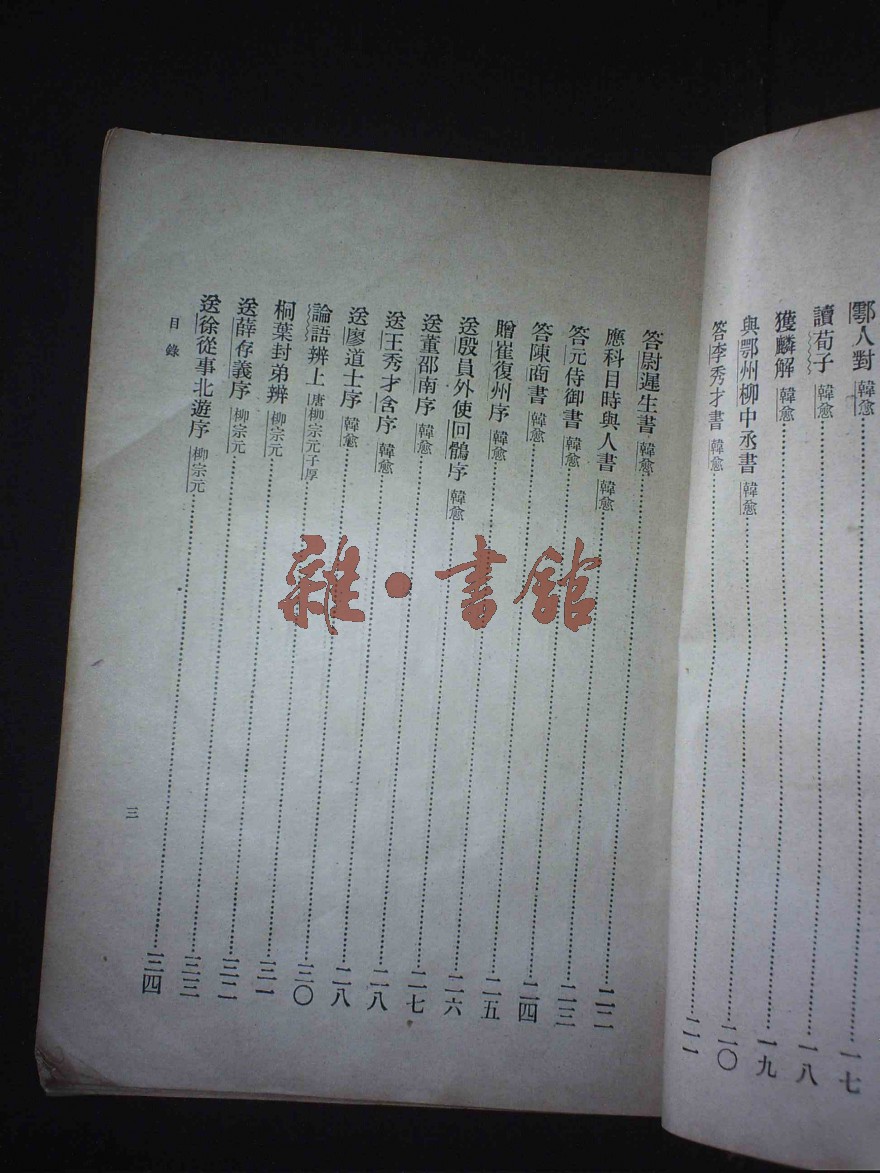 鄠人對 韓愈……一七
讀荀子 韓愈……一八
獲麟解 韓愈……一九
與鄂州柳中丞書 韓愈……二〇
答李秀才書 韓愈……二一
答尉遲生書 韓愈……二二
應科目時與人書 韓愈……二三
答元侍御書 韓愈……二四
答陳商書 韓愈……二五
贈崔復州序 韓愈……二六
送殷員外使回鶻序 韓愈……二七
送董邵南序 韓愈……二八
送王秀才含序 韓愈……二八
送廖道士序 韓愈……三〇
論語辨上 唐柳宗元子厚……三一
桐葉封弟辨 柳宗元……三二
送薛存義序 柳宗元……三三
送徐從事北遊序 柳宗元……三四
目錄
三
雜·書館